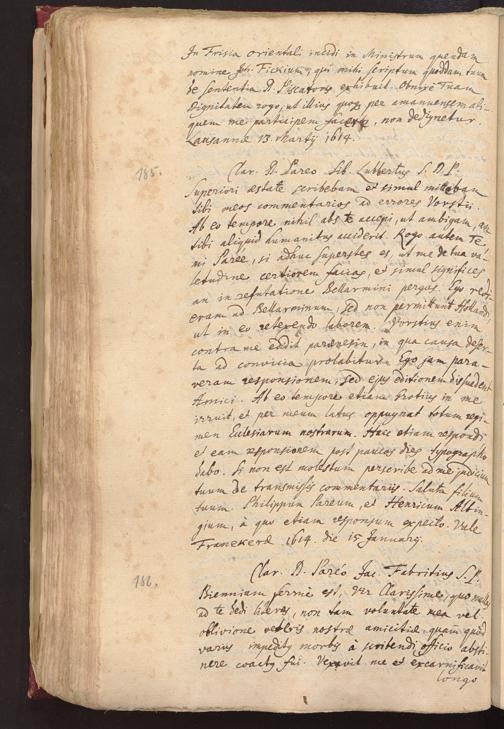 In Frisia orientali incidi in Ministrum quendam
nomine Joh. Fickium, qui mihi scriptum quoddam tum
de sententia D. Piscatoris exhibuit. Obnixe Tuam
Dignitatem rogo, ut illius quoq; per amanuensem ali-
quem me participem facere, non dedignetur.
Lausannæ 13. Martij 1614.
185.
Clar. D. Pareo Sib. Lubbertus S. D. P.
Superiori æstate scribebam et simul mittebam
tibi meos commentarios ad errores Vorstii.
Ab eo tempore nihil abs te accepi, ut ambigam, an
tibi aliquid humanitus acciderit. Rogo autem Te
mi Paree, si adhuc superstes es, ut me de tua va-
letudine certiorem facias, et simul significes
an in refutatione Bellarmini pergas. Ego redi-
eram ad Bellarminum, sed non permittunt Hollandi
ut in eo retexendo laborem. Vorstius enim
contra me edidit parænesin, in qua causa deser-
ta ad convicia prolabitur. Ego jam para-
veram responsionem, sed ejus editionem dissuadent
Amici. Ab eo tempore etiam Grotius in me
irruit, et per meum latus oppugnat totum regi-
men Ecclesiarum nostrarum. Huic etiam respondi
et eam responsionem post paucos dies typographo
dabo. Si non est molestum perscribe ad me judicium
tuum de transmissis commentariis. Saluta filium
tuum Philippum Pareum, et Henricum Altin-
gium, à quo etiam responsum expecto. Vale
Franekeræ 1614. die 15 Januarij.
186.
Clar. D. Pareo Jac. Fabritius S. P.
Biennium fermè est, Vir Clarissime, quo nullas
ad te dedi literas, non tam voluntate mea vel
oblivione veteris nostræ amicitiæ, quam quod
variis impeditus morbis à scribendi officio absti-
nere coactus fui. Vexavit me et excarnificavit
longo